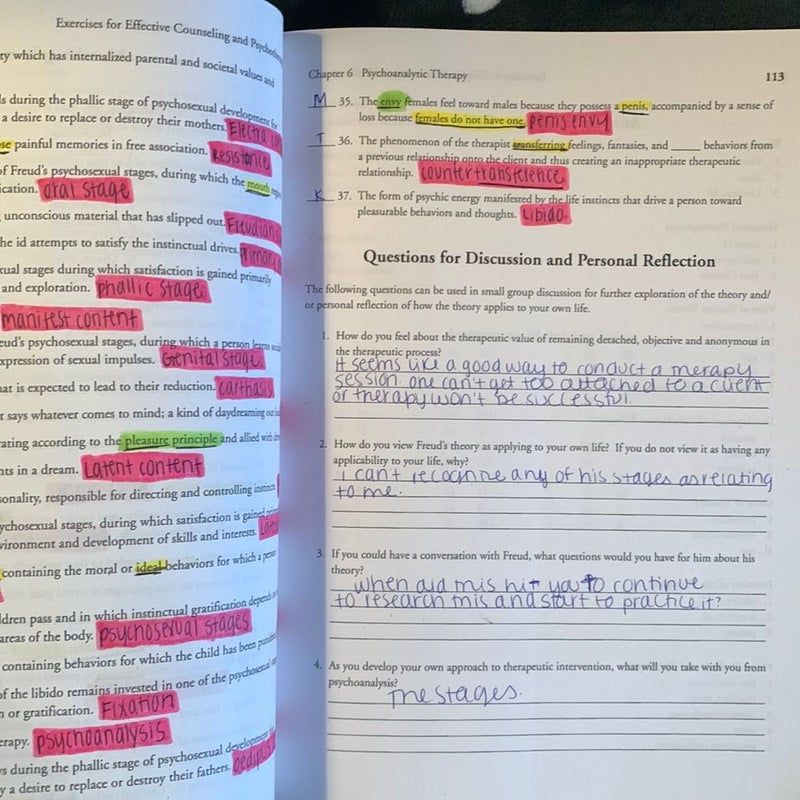 Exercises for Effective Counseling and
ty which has internalized parental and societal values and
ls during the phallic stage of psychosexual development for
a desire to replace or destroy their mothers. Electra
se painful memories in free association.
Resistance
of Freud's psychosexual stages, during which the mouth
ication. oral stage
unconscious material that has slipped out. Freudian
he id attempts to satisfy the instinctual drives.
xual stages during which satisfaction is gained primarily
and exploration. phallic stage
manifest content
eud's psychosexual stages, during which a person learns
xpression of sexual impulses. Genital stage
hat is expected to lead to their reduction. carthasis
t says whatever comes to mind; a kind of daydreaming out
ating according to the pleasure principle and allied with
nts in a dream. Latent content
sonality, responsible for directing and controlling instincts
ychosexual stages, during which satisfaction is gained
vironment and development of skills and interests.
containing the moral or ideal behaviors for which a person
ldren pass and in which instinctual gratification depends
areas of the body. psychosexual stages
containing behaviors for which the child has been
of the libido remains invested in one of the psychosexual
n or gratification. Fixation
erapy. psychoanalysis
s during the phallic stage of psychosexual development
y a desire to replace or destroy their fathers. oedipus
Chapter 6 Psychoanalytic Therapy 113
M 35. The envy females feel toward males because they possess a penis, accompanied by a sense of
loss because females do not have one. penis envy
T 36. The phenomenon of the therapist transferring feelings, fantasies, and _____ behaviors from
a previous relationship onto the client and thus creating an inappropriate therapeutic
relationship. countertransference
K 37. The form of psychic energy manifested by the life instincts that drive a person toward
pleasurable behaviors and thoughts. Libido
Questions for Discussion and Personal Reflection
The following questions can be used in small group discussion for further exploration of the theory and/
or personal reflection of how the theory applies to your own life.
1. How do you feel about the therapeutic value of remaining detached, objective and anonymous in
the therapeutic process?
it seems like a good way to conduct a therapy
session. one can't get too attached to a client
or therapy won't be successful.
2. How do you view Freud's theory as applying to your own life? If you do not view it as having any
applicability to your life, why?
i can't recognize any of his stages as relating
to me.
3. If you could have a conversation with Freud, what questions would you have for him about his
theory?
when did this hit you to continue
to research this and start to practice it?
4. As you develop your own approach to therapeutic intervention, what will you take with you from
psychoanalysis?
The stages.